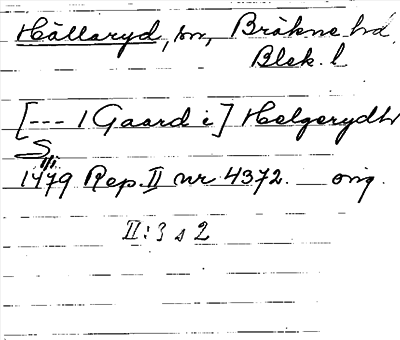 Hällaryd, sn, Bräkne hd.
Blek. l
[--- 1 Gaard i] Helgerydh
S
1479 Rep. II nr 4372. orig.
II:3 s 2